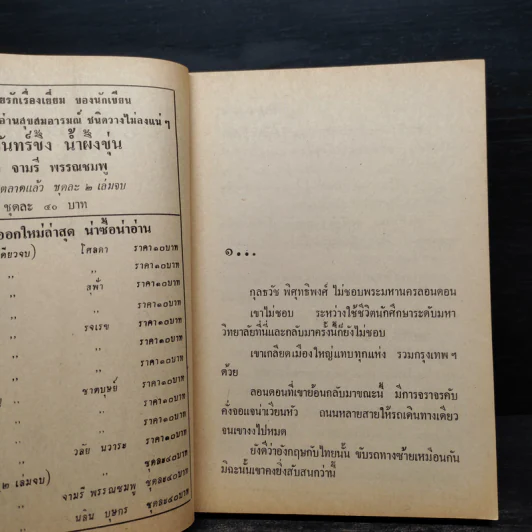 ยรักเรื่องเยี่ยม ของนักเขียน
อ่านสุขสมอารมณ์ ชนิดวางไม่ลงแน่ ๆ
นทร์ชิง น้ำผึ้งขุ่น
จามรี พรรณชมพู
ตลาดแล้ว ชุดละ ๒ เล่มจบ
ชุดละ ๔๐ บาท
ออกใหม่ล่าสุด น่าซื้อน่าอ่าน
เดียวจบ) โสลดา ราคา๑๐บาท
,, ,, ราคา๑๐บาท
,, สุฟ้า ราคา๑๐บาท
,, ,, ราคา๑๐บาท
,, รจเรข ราคา๑๐บาท
,, ,, ราคา๑๐บาท
,, ชาตบุษย์ ราคา๑๐บาท
,, ,, ราคา๑๐บาท
,, ,, ราคา๑๐บาท
,, วลัย นวาระ ราคา๑๐บาท
๒ เล่มจบ) ,, ชุดละ๔๐บาท
,, จามรี พรรณชมพู ชุดละ๔๐บาท
,, นลิน บุษกร ชุดละ๔๐บาท
๑...
กุลธวัช พิศุทธิพงศ์ ไม่ชอบพระมหานครลอนดอน
เขาไม่ชอบ ระหว่างใช้ชีวิตนักศึกษาระดับมหา
วิทยาลัยที่นี่และกลับมาครั้งนี้ก็ยังไม่ชอบ
เขาเกลียดเมืองใหญ่แทบทุกแห่ง รวมกรุงเทพ ฯ
ด้วย
ลอนดอนที่เขาย้อนกลับมาขณะนี้ มีการจราจรคับ
คั่งจอแจน่าเวียนหัว ถนนหลายสายให้รถเดินทางเดียว
จนเขางงไปหมด
ยังดีว่าอังกฤษกับไทยนั้น ขับรถทางซ้ายเหมือนกัน
มิฉะนั้นเขาคงยิ่งสับสนกว่านี้